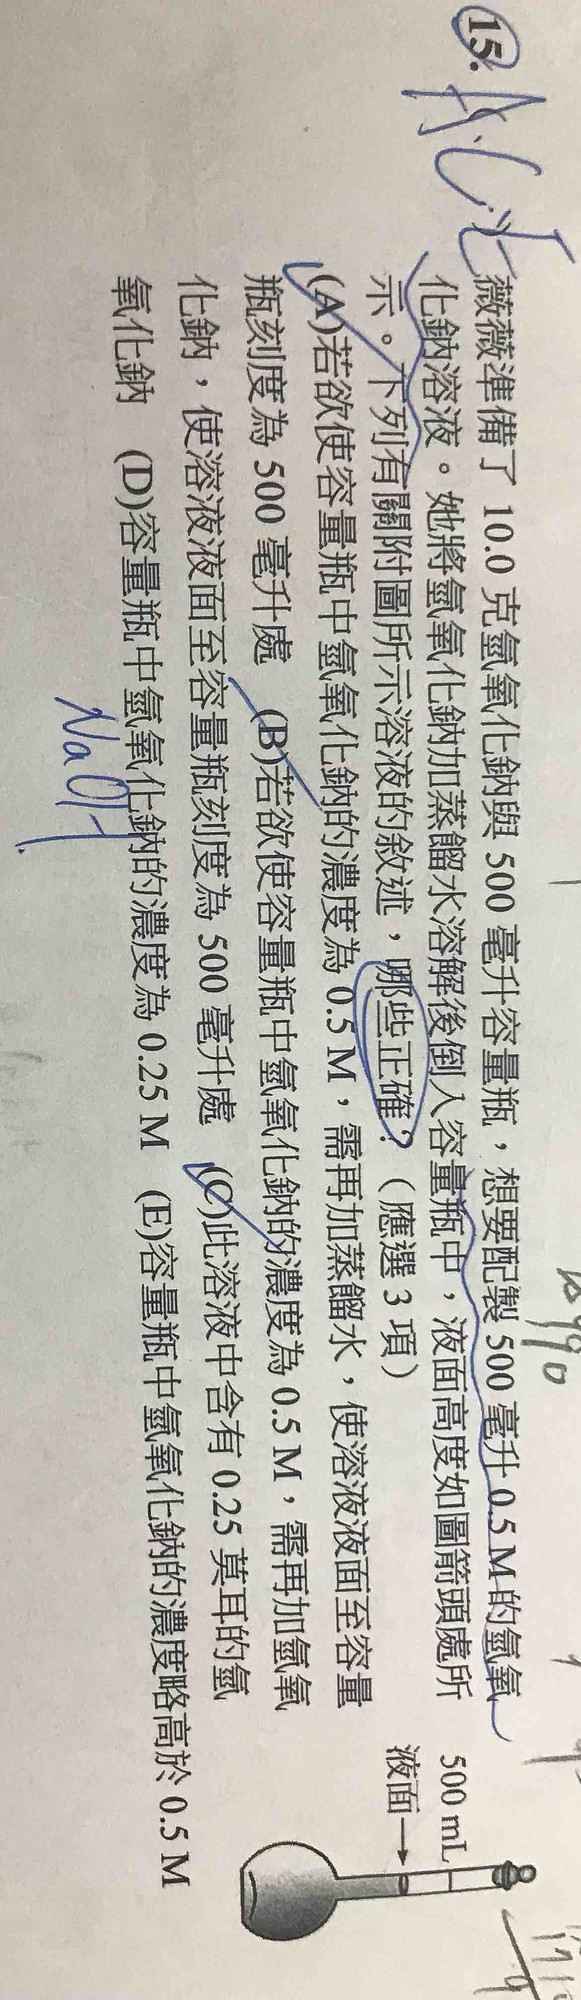 15.
A.C.E
薇薇準備了 10.0 克氫氧化鈉與 500 毫升容量瓶，想要配製 500 毫升 0.5 M 的氫氧
化鈉溶液。她將氫氧化鈉加蒸餾水溶解後倒入容量瓶中，液面高度如圖箭頭處所
示。下列有關附圖所示溶液的敘述，哪些正確？（應選 3 項）
(A)若欲使容量瓶中氫氧化鈉的濃度為 0.5 M，需再加蒸餾水，使溶液液面至容量
瓶刻度為 500 毫升處　(B)若欲使容量瓶中氫氧化鈉的濃度為 0.5 M，需再加氫氧
化鈉，使溶液液面至容量瓶刻度為 500 毫升處　(C)此溶液中含有 0.25 莫耳的氫
氧化鈉　(D)容量瓶中氫氧化鈉的濃度為 0.25 M　(E)容量瓶中氫氧化鈉的濃度略高於 0.5 M
NaOH
500 mL
液面→